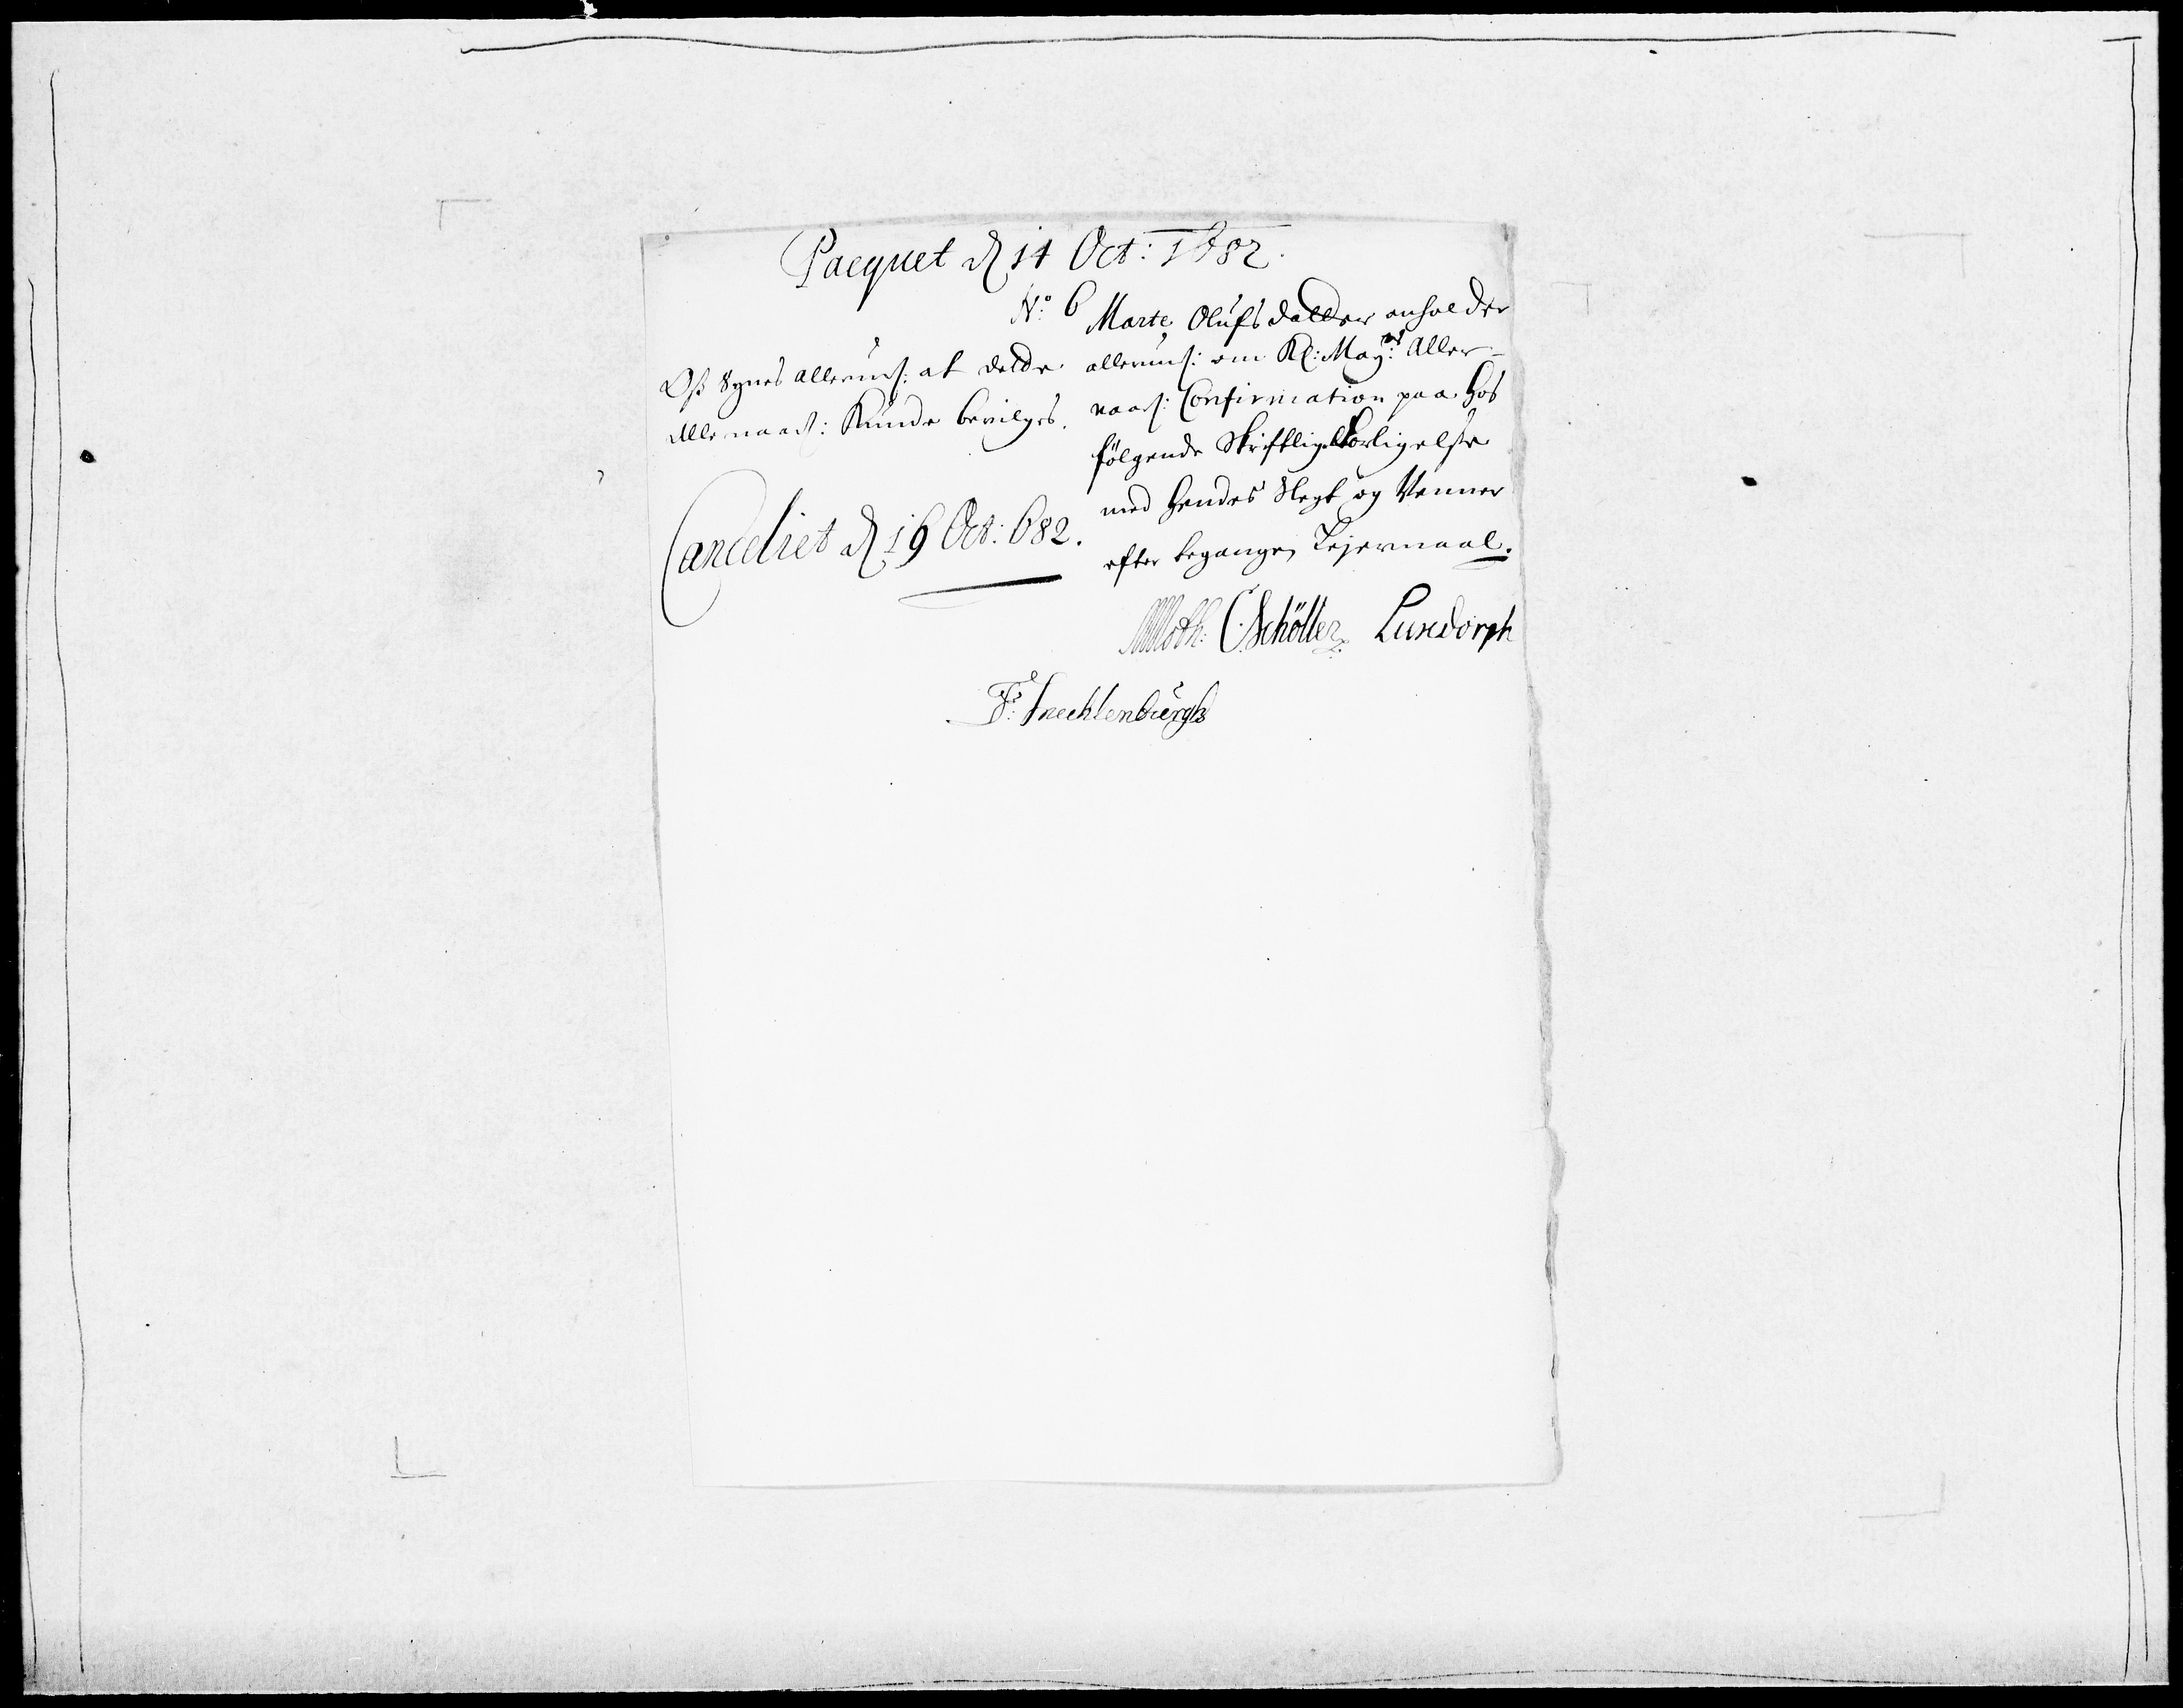 Pacquet d 14 Oct: 1682.
No: 6
Marte Olufsdatter anholder
allerund: om Kl: May:ts Aller-
naad: Confirmation paa hos
følgende Skriftlig forligelse
med hendes Slegt og Venner
efter begangen Lejermaal.
Oss Synes allerund: at dette
allernaad: Kunde bevilges.
Canceliet d 16 Oct: 682.
Moth: CSchøller Luxdorph
Fr: Mecklenburgh